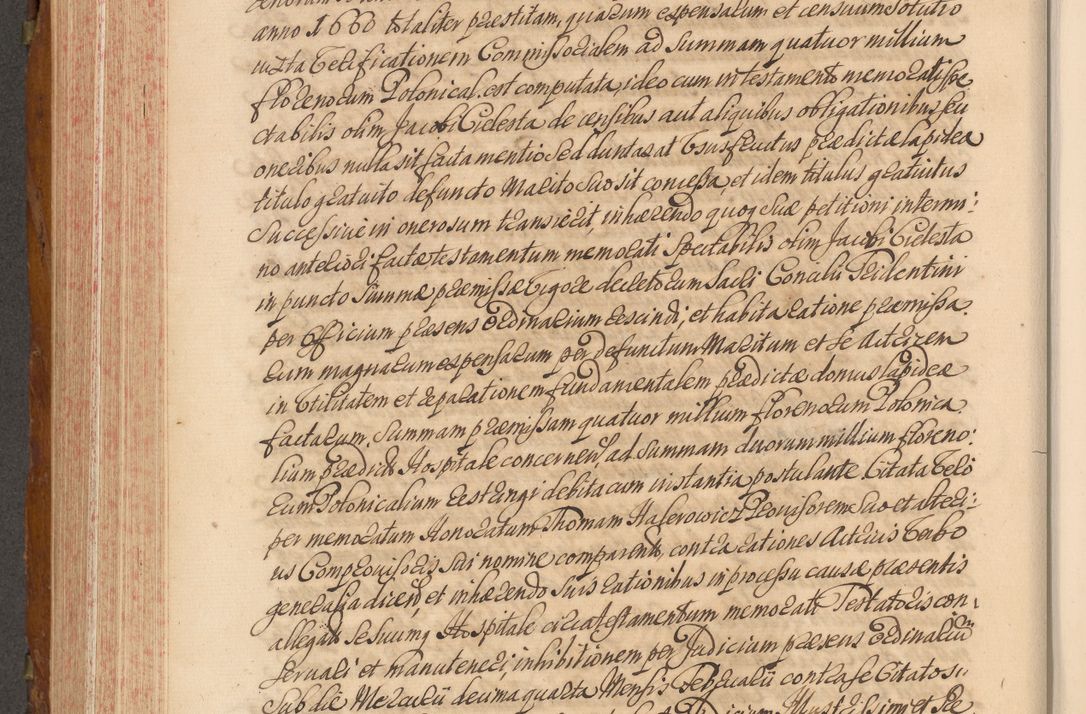 anno 1660 totaliter præstitam, quarum expensarum et censuum solutio
iuxta Verificationem Commissorialem ad Summam quatuor millium
florenorum Polonical. est computata, ideo cum in testamento memorati spe
ctabilis olim Jacobi Celesta de censibus aut aliquibus obligationibus, seu
oneribus nulla sit facta mentio Sed duntaxat Vsusfructus prædictæ lapideæ
titulo gratuito defuncto Marito Suo sit concessa, et idem titulus gratuitus
Successive in onerosum transierit, inhærendo quoq Suæ petitioni intermi:
no anteriori factæ testamentum memorati Spectabilis olim Jacobi Celesta
in puncto Summæ præmissæ Vigore decretorum Sacri Concilii Tridentini
per Officium præsens Ordinarium rescindi, et habita ratione præmissa
rum magnarum expensarum per defunctum Maritum et Se Actricem
in Vtilitatem et reparationem fundamentalem prædictæ domus lapideæ
factarum, Summam præmissam quatuor millium florenorum Polonica
lium prædict Hospitale concernen, ad Summam duorum millium floreno:
rum Polonicalium restringi debita cum instantia postulante Citata Vero
per memoratum Honoratum Thomam Haserowicz Provisorem Suo et alteri:
us Comprovisoris Sui nomine comparente, contra rationes Actricis Verbo
generalia dicen, et inhærendo Suis rationibus in processu causæ præsentis
allegat Se Suumq Hospitale circa testamentum memorati Testatoris con:
servari et manuteneri, inhibitionem per Judicium præsens Ordinarium
Sub die Mercurii decima quarta Mensis Februarii contra se Citatos